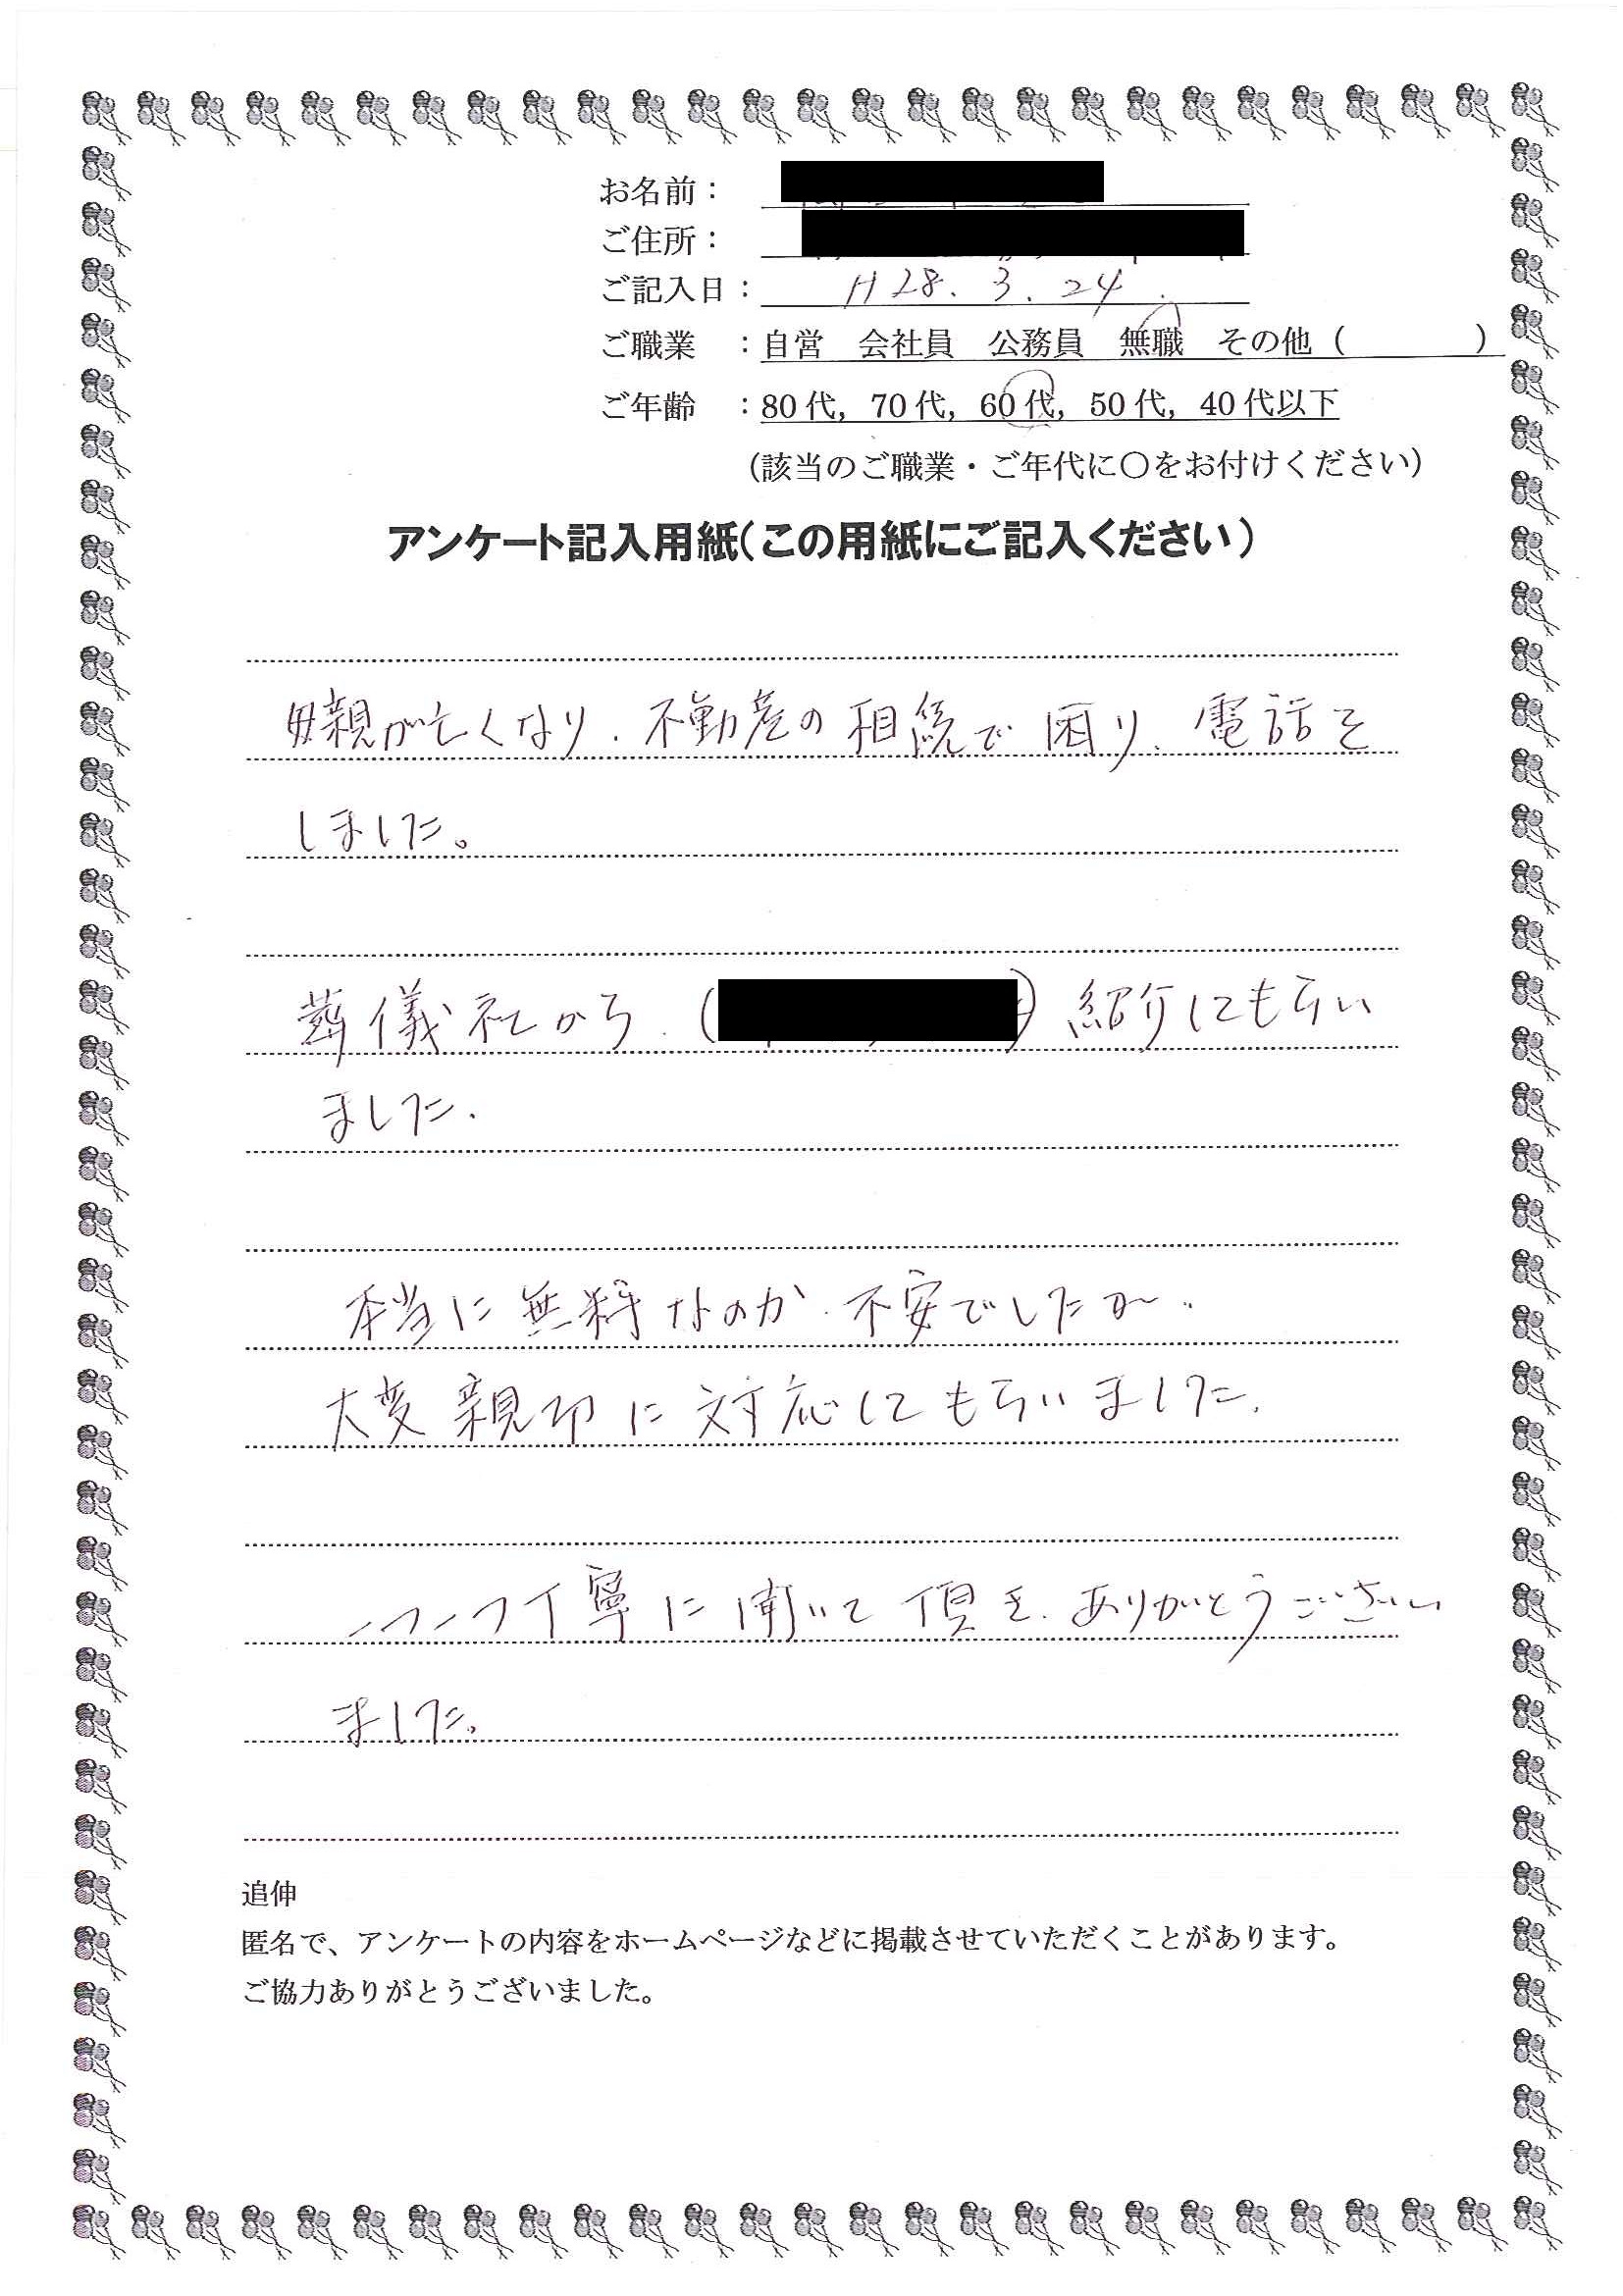 お名前：
ご住所：
ご記入日：H28.3.24.
ご職業　：自営　会社員　公務員　無職　その他（　　　　）
ご年齢　：80代，70代，60代，50代，40代以下
（該当のご職業・ご年代に〇をお付けください）
アンケート記入用紙（この用紙にご記入ください）
母親が亡くなり、不動産の相続で困り、電話を
しました。
葬儀社から（　　　）紹介してもらい
ました。
本当に無料なのか、不安でしたが、
大変親切に対応してもらいました。
一つ一つ丁寧に聞いて頂き、ありがとうござい
ました。
追伸
匿名で、アンケートの内容をホームページなどに掲載させていただくことがあります。
ご協力ありがとうございました。